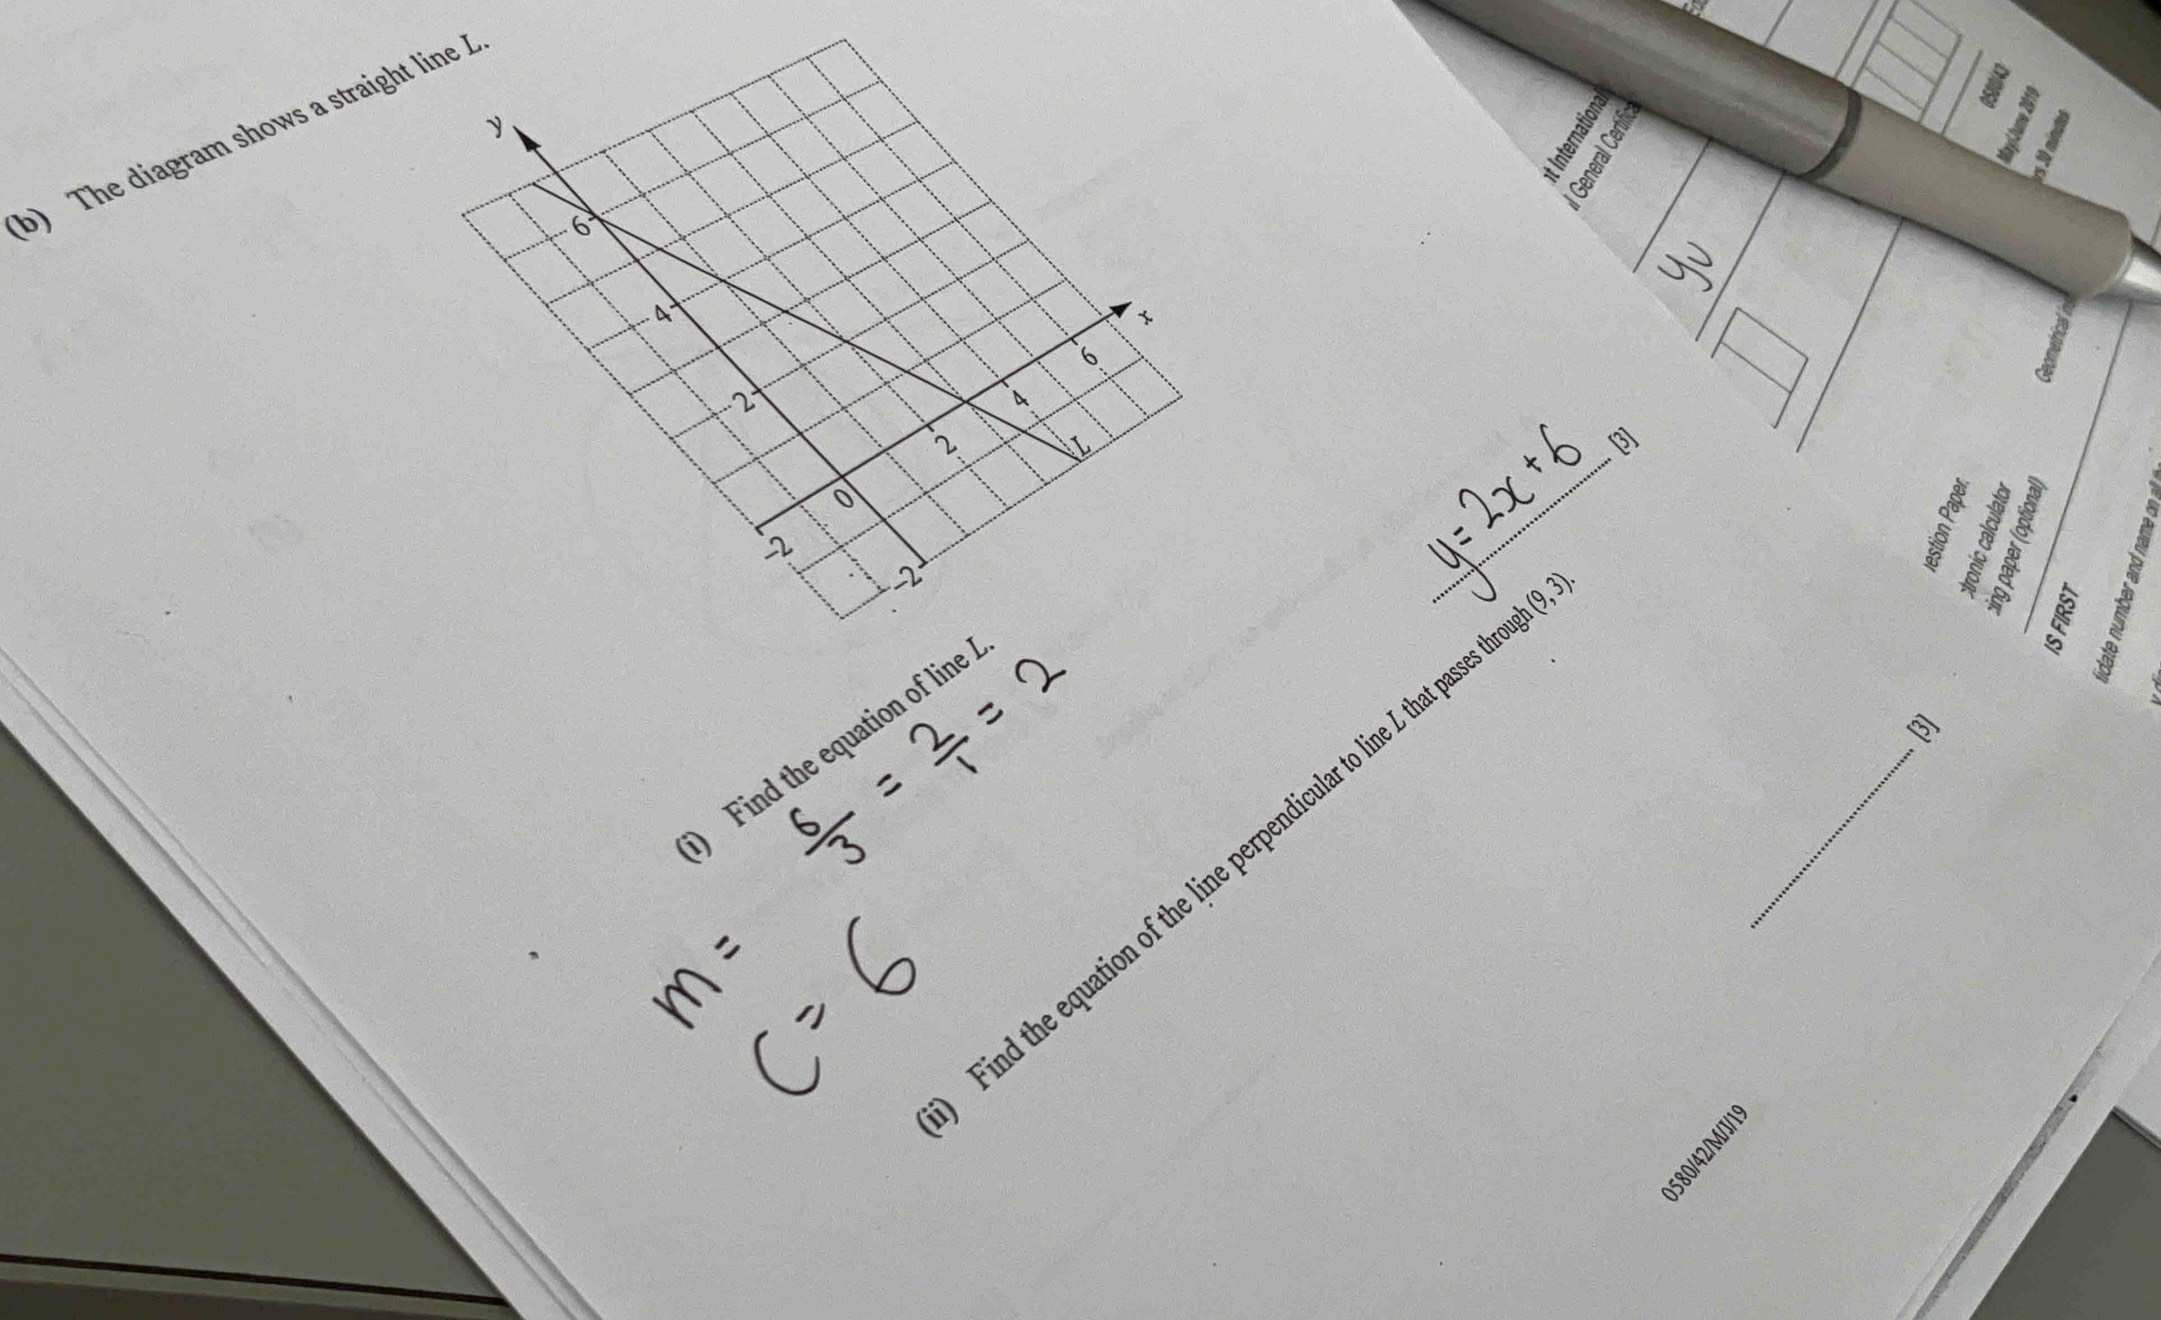 (b) The diagram shows a straight line L.
y
6
4
2
-2
0
2
4
6
x
L
-2
(i) Find the equation of line L.
m = 6/3 = 2/1 = 2
C = 6
y = 2x + 6
[3]
(ii) Find the equation of the line perpendicular to line L that passes through (9, 3).
[3]
0580/42/M/J/19
International
General
0580/42
May/June 2019
30 minutes
Geometrical
Paper.
calculator
paper (optional)
IS FIRST
number and name on